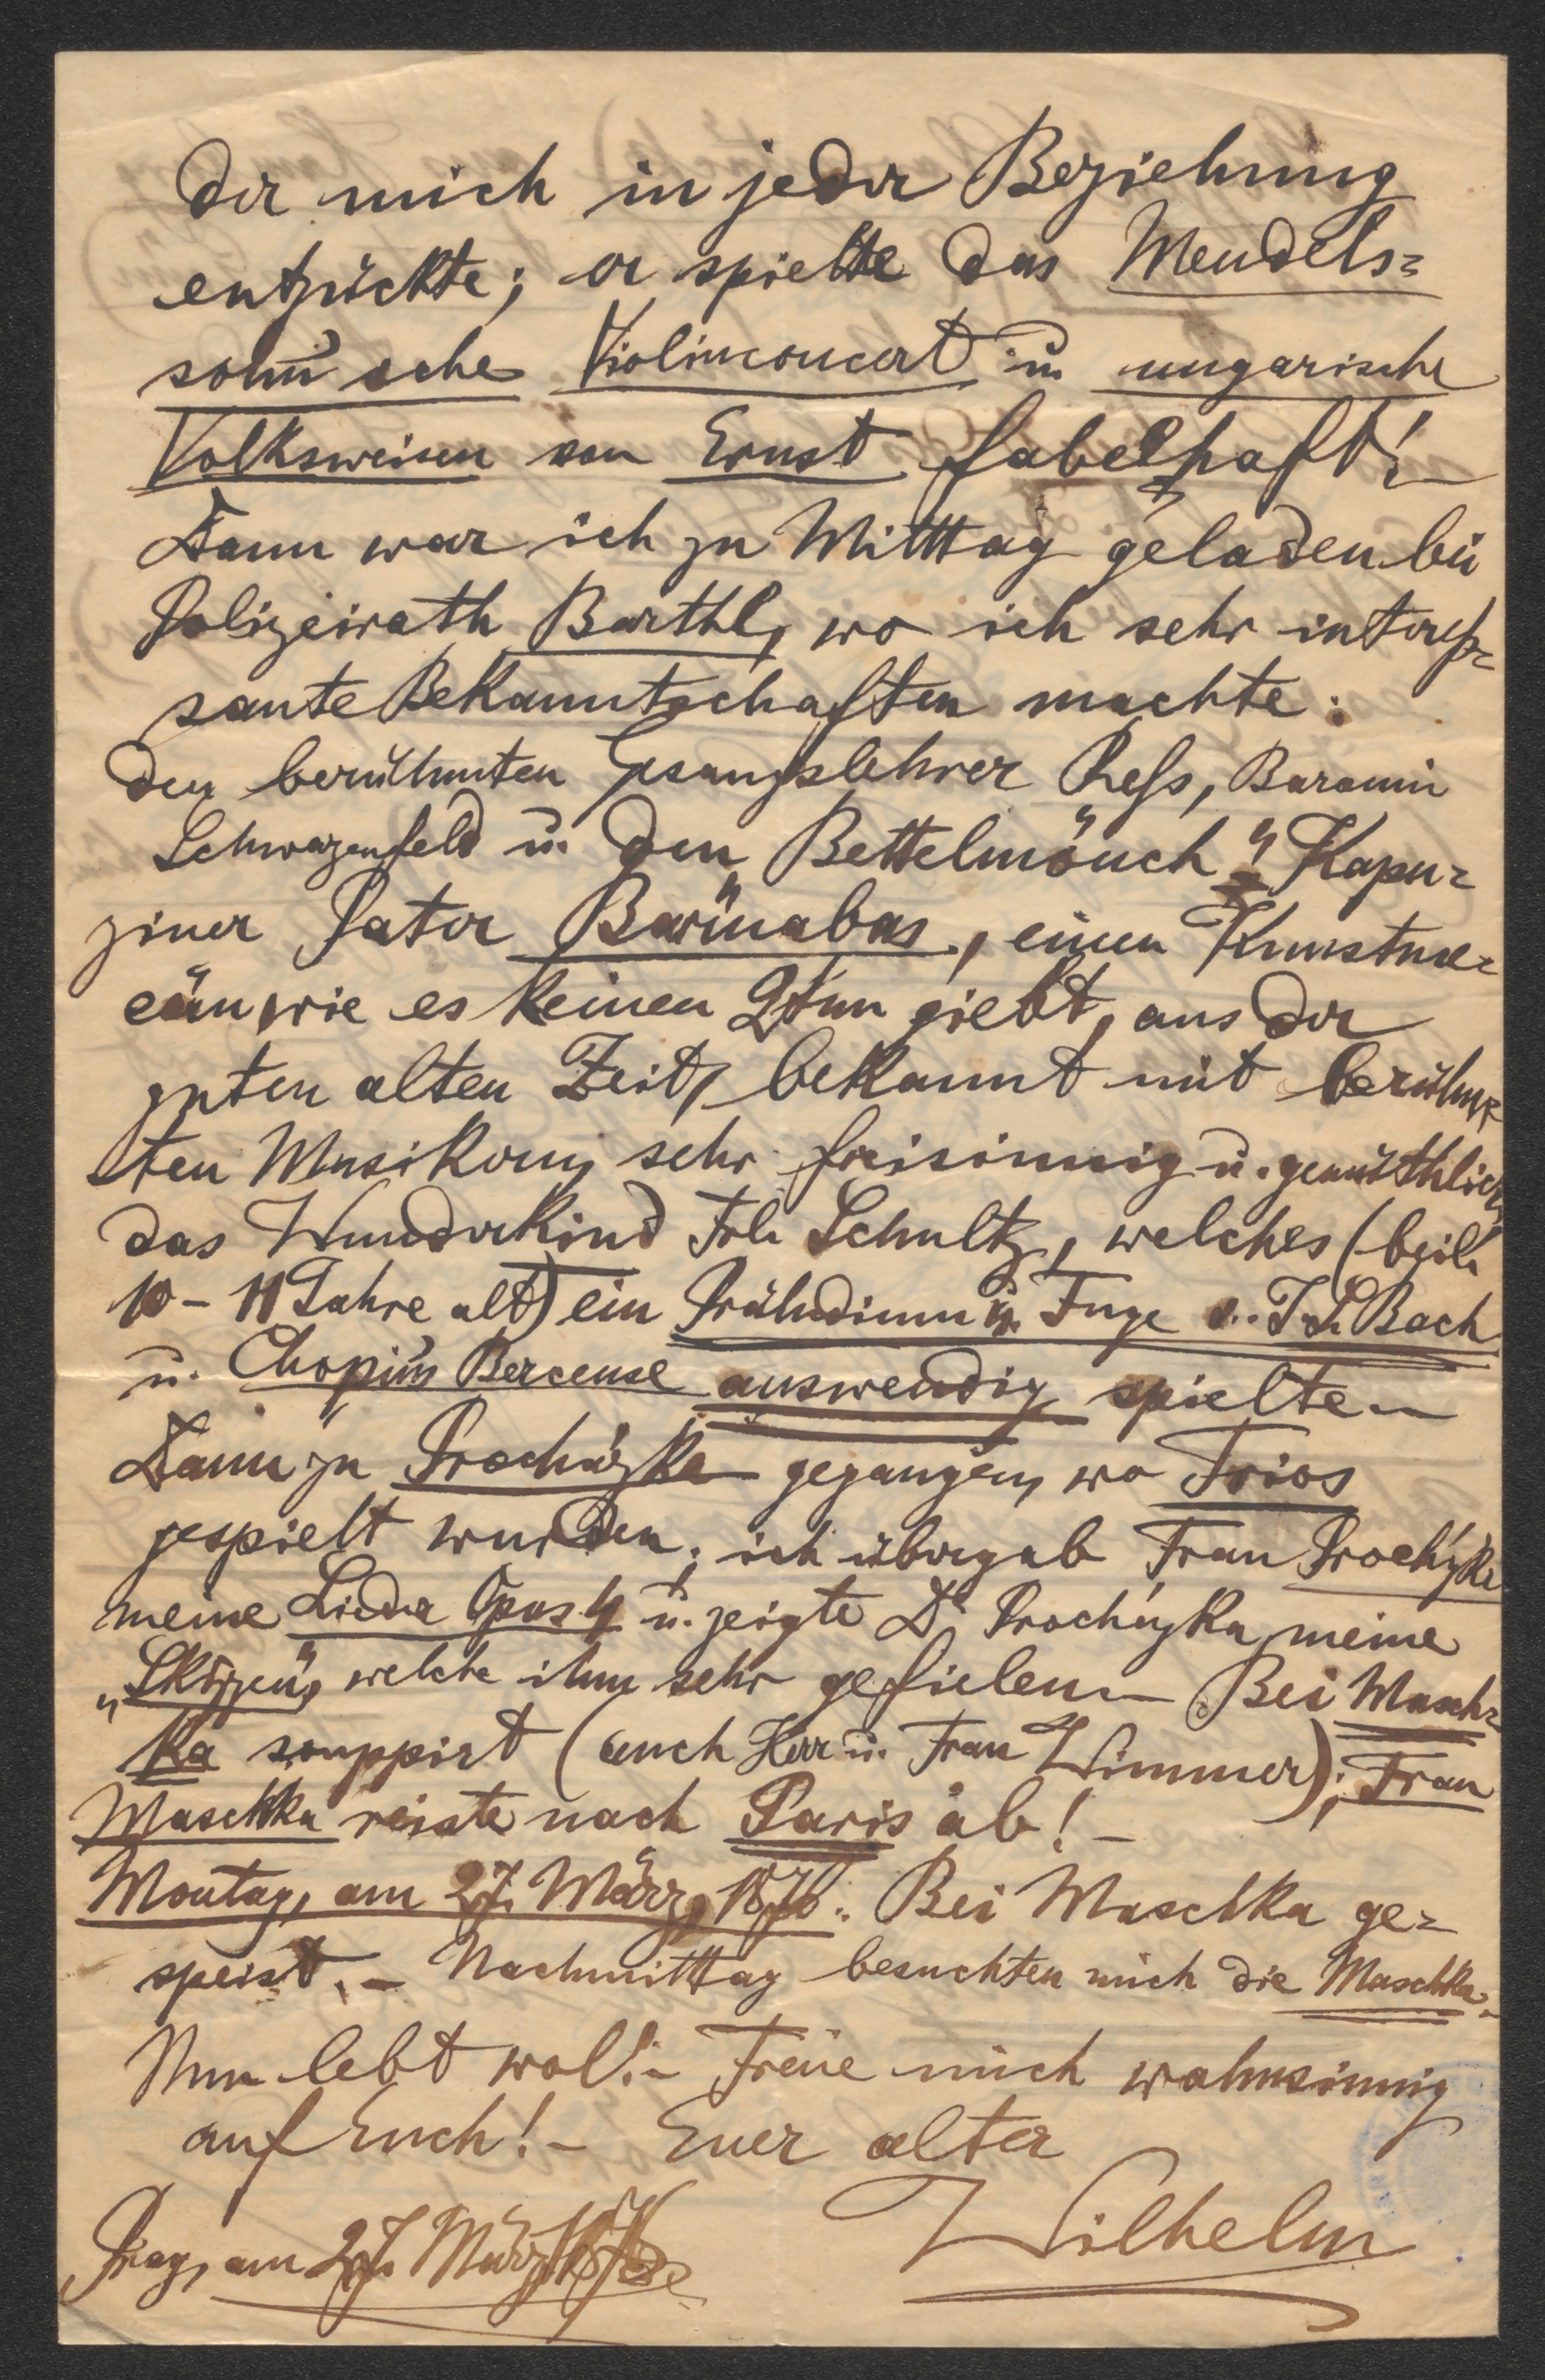 der mich in jeder Beziehung
entzückte; er spielte das Mendels=
sohn'sche Violinconcert u. ungarische
Volksweisen von Ernst fabelhaft! –
Dann war ich zu Mitttag geladen bei
Polizeirath Barthl, wo ich sehr interes=
sante Bekanntschaften machte:
den berühmten Gesangslehrer Ress, Baronin
u. den "Bettelmönch" Kapu=
ziner Pater Barnabas, einen Kunstmä=
cän wie es keinen 2ten giebt, aus der
guten alten Zeit, bekannt mit berühm=
ten Musikern, sehr freisinnig u. gemüthlich,
das Wunderkind Frl. Schultz, welches (beil.
10–11 Jahre alt) ein Präludium u. Fuge v. J. S. Bach
u. Chopins Berceuse auswendig spielte –
Dann zu Procházka gegangen, wo Trios
gespielt wurden; ich übergab Frau Procházka
meine Lieder Opus 4 u. zeigte Dr Procházka meine
„Skizzen", welche ihm sehr gefielen – Bei Masch=
ka souppirt (auch Herr u. Frau Wimmer); Frau
Maschka reiste nach Paris ab! –
Montag, am 27. März, 1876. Bei Maschka ge=
speist. – Nachmitttag besuchten mich die Maschka. –
Nun lebt wol! – Freue mich wahnsinnig
auf Euch! – Euer alter
Wilhelm
Prag, am 27. März 1876